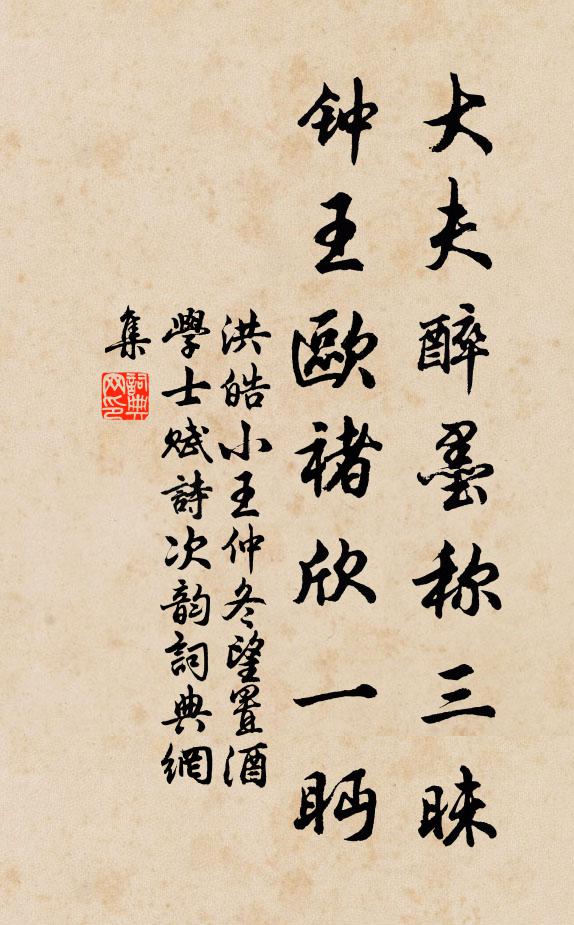 大夫醉墨称三昧
钟王歐褚欣一眄
洪皓小王仲冬望置酒
學士赋詩次韵詞典網
集
詞典
网印